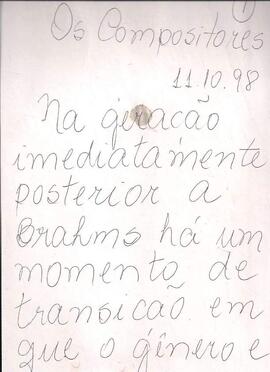 1
Os Compositores
11.10.98
Na geracão
imediatamente
posterior a
Brahms há um
momento de
transicão em
que o gênero e